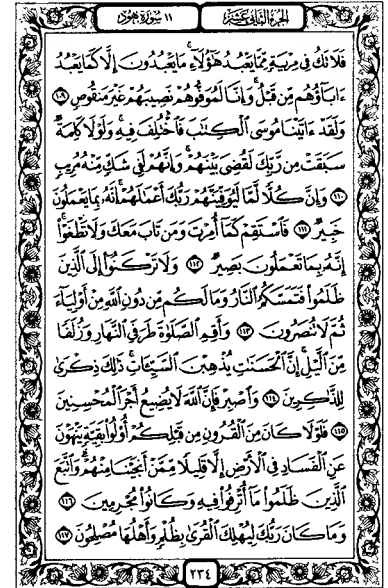 الجزء الثاني عشر
١١ سورة هود
فَلَا تَكُ فِى مِرْيَةٍ مِّمَّا يَعْبُدُ هَٰٓؤُلَآءِ ۚ مَا يَعْبُدُونَ إِلَّا كَمَا يَعْبُدُ
ءَابَآؤُهُم مِّن قَبْلُ ۚ وَإِنَّا لَمُوَفُّوهُمْ نَصِيبَهُمْ غَيْرَ مَنقُوصٍ ﴿١٠٩﴾
وَلَقَدْ ءَاتَيْنَا مُوسَى ٱلْكِتَٰبَ فَٱخْتُلِفَ فِيهِ ۚ وَلَوْلَا كَلِمَةٌ
سَبَقَتْ مِن رَّبِّكَ لَقُضِىَ بَيْنَهُمْ ۚ وَإِنَّهُمْ لَفِى شَكٍّ مِّنْهُ مُرِيبٍ
﴿١١٠﴾ وَإِنَّ كُلًّا لَّمَّا لَيُوَفِّيَنَّهُمْ رَبُّكَ أَعْمَٰلَهُمْ ۚ إِنَّهُۥ بِمَا يَعْمَلُونَ
خَبِيرٌ ﴿١١١﴾ فَٱسْتَقِمْ كَمَآ أُمِرْتَ وَمَن تَابَ مَعَكَ وَلَا تَطْغَوْا۟ ۚ
إِنَّهُۥ بِمَا تَعْمَلُونَ بَصِيرٌ ﴿١١٢﴾ وَلَا تَرْكَنُوٓا۟ إِلَى ٱلَّذِينَ
ظَلَمُوا۟ فَتَمَسَّكُمُ ٱلنَّارُ وَمَا لَكُم مِّن دُونِ ٱللَّهِ مِنْ أَوْلِيَآءَ
ثُمَّ لَا تُنصَرُونَ ﴿١١٣﴾ وَأَقِمِ ٱلصَّلَوٰةَ طَرَفَىِ ٱلنَّهَارِ وَزُلَفًا
مِّنَ ٱلَّيْلِ ۚ إِنَّ ٱلْحَسَنَٰتِ يُذْهِبْنَ ٱلسَّيِّـَٔاتِ ۚ ذَٰلِكَ ذِكْرَىٰ
لِلذَّٰكِرِينَ ﴿١١٤﴾ وَٱصْبِرْ فَإِنَّ ٱللَّهَ لَا يُضِيعُ أَجْرَ ٱلْمُحْسِنِينَ
﴿١١٥﴾ فَلَوْلَا كَانَ مِنَ ٱلْقُرُونِ مِن قَبْلِكُمْ أُو۟لُوا۟ بَقِيَّةٍ يَنْهَوْنَ
عَنِ ٱلْفَسَادِ فِى ٱلْأَرْضِ إِلَّا قَلِيلًا مِّمَّنْ أَنجَيْنَا مِنْهُمْ ۗ وَٱتَّبَعَ
ٱلَّذِينَ ظَلَمُوا۟ مَآ أُتْرِفُوا۟ فِيهِ وَكَانُوا۟ مُجْرِمِينَ ﴿١١٦﴾
وَمَا كَانَ رَبُّكَ لِيُهْلِكَ ٱلْقُرَىٰ بِظُلْمٍ وَأَهْلُهَا مُصْلِحُونَ ﴿١١٧﴾
٢٣٤